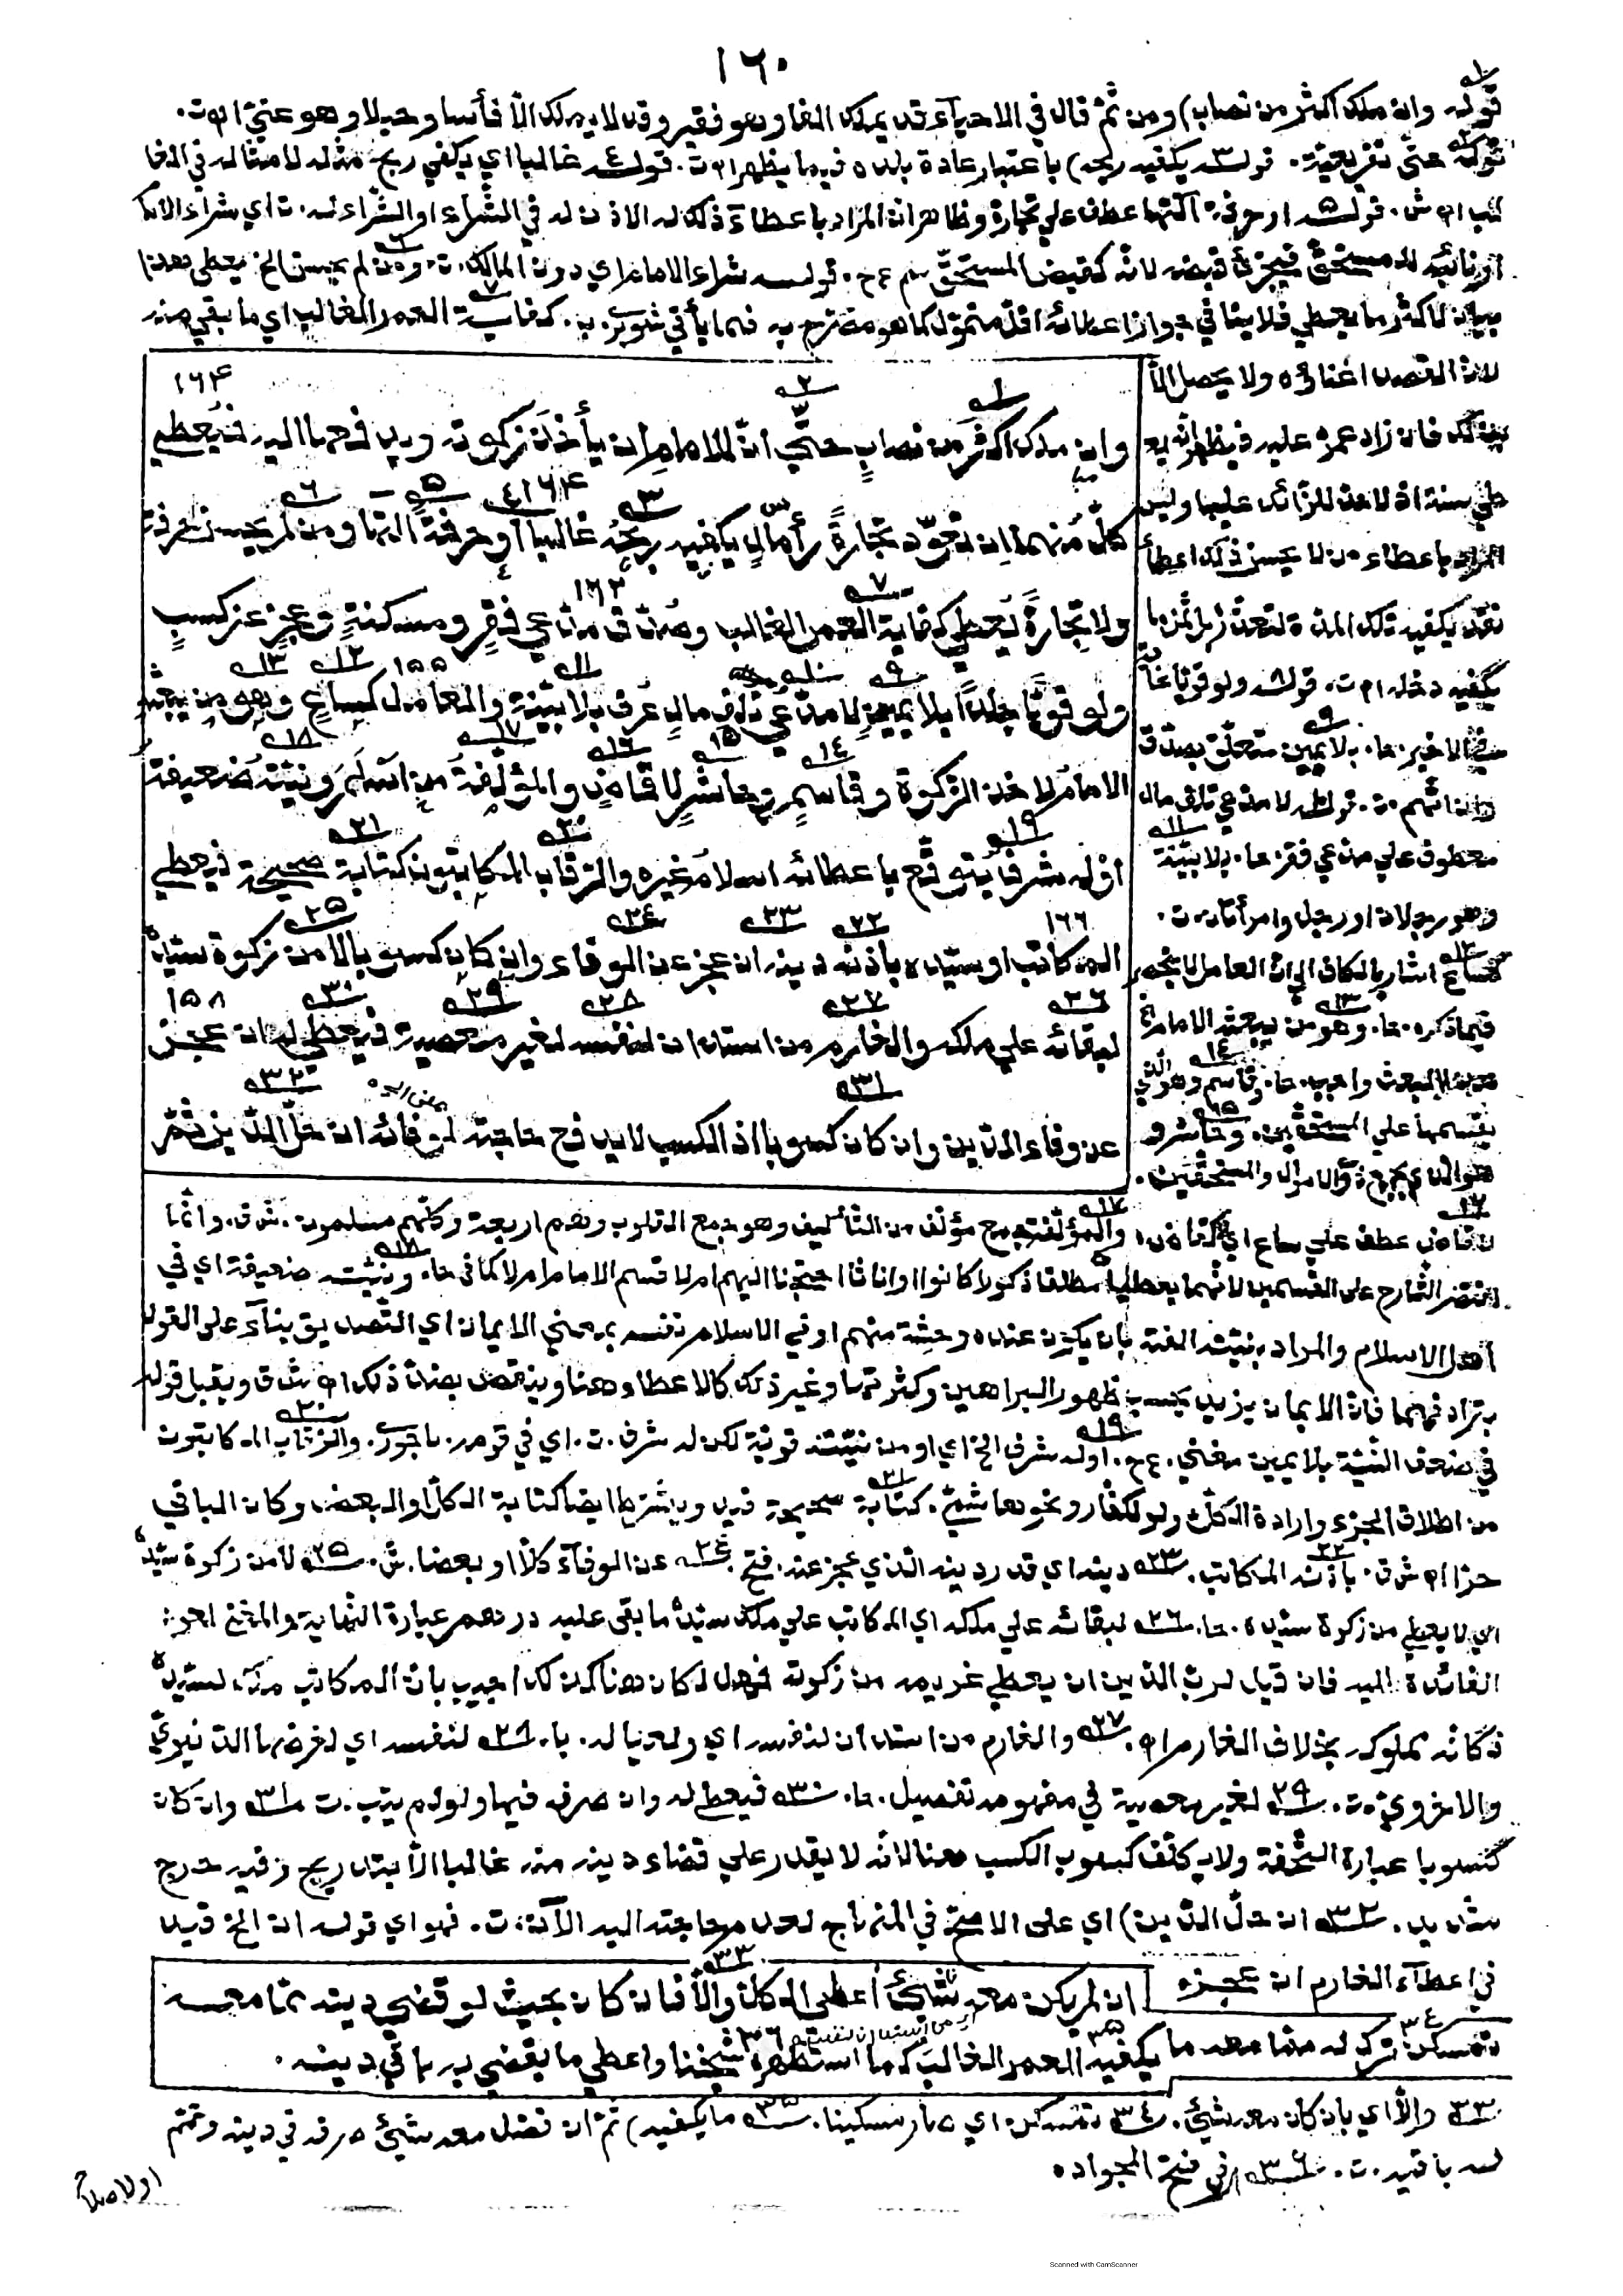 ١٦٠
قوله وان ملك اكثر من نصاب) ومن ثم قال في الاحيآء قد يملك الفا وهو فقير وقد لا يملك الّا فأسا وحبلا وهو غنيّ اه ت.
قوله حتى تفريعية. قوله يكفيه ربحه) باعتبار عادة بلده فيما يظهر اه ت. قوله غالبا اي يكفي ربح مثله لا مثاله في الغا
لب اه ش. قوله او حرفة آلتها عطف علي تجارة وظاهر ان المراد باعطآء ذلك له الاذن له في الشراء او الشراء له. ت اي شراء الامام
او نائبه للمستحق فيجزئ قبضه لانه كقبض المستحق سم ع ح. قوله شراء الامام اي دون المالك. ت. ومن لم يحسن الخ يعطي هذا
بيان لاكثر ما يعطي فلا ينافي جواز اعطائه اقل متمول كما هو مصرح به فيما يأتي شوبري ب. كفاية العمر الغالب اي ما بقي منه
لان القصد اغناؤه ولا يحصل الا
بذلك فان زاد عمره عليه فيظهر انه يع
طي سنة اذ لا حد للزائد عليها وليس
المراد باعطاء من لا يحسن ذلك اعطأ
نقد يكفيه تلك المدة لتعذره بل ثمن ما
يكفيه دخله اه ت. قوله ولو قويا غا
ية للاخير. حا. بلا يمين متعلق بصدق
وان اتهم. ت. قوله لا مدعي تلف مال
معطوف علي مدعي فقر. حا. بلا بينة
وهو رجلان او رجل وامرأتان. ت.
كساع اشار بالكاف الي ان العامل لا ينحصر
فيما ذكره. حا. وهو من يبعثه الامام الخ
هذا البعث واجب. حا. وقاسم وهو الذي
يقسمها علي المستحقين. وحاشر و
هو الذي يجمع ذوي الاموال والمستحقين.
١٦٤
وان ملك اكثر من نصاب حتّي انّ للامام ان يأخذ زكوته ويدفعها اليه فيعطي
كلّ منهما ان تعوّد تجارة رأس مال يكفيه ربحه غالبا او حرفة آلتها ومن لم يحسن حرفة
ولا تجارة يعطي كفاية العمر الغالب وصدّق مدّعي فقر ومسكنة وعجز عن كسب
ولو قويّا جلدا بلا يمين لا مدّعي تلف مال عرف بلا بيّنة والعامل كساع وهو من يبعثه
الامام لاخذ الزكوة وقاسم وحاشر لا قاض والمؤلّفة من اسلم ونيّته ضعيفة
او له شرف يتوقّع باعطائه اسلام غيره والرّقاب المكاتبون كتابة صحيحة فيعطي
المكاتب او سيّده باذنه دينه ان عجز عن الوفاء وان كان كسوبا لا من زكوة سيّده
لبقائه علي ملكه والغارم من استدان لنفسه لغير معصية فيعطي له ان عجز
عن وفاء الدّين وان كان كسوبا اذ الكسب لا يدفع حاجته لوفائه ان حلّ الدّين ثمّ
لا قاض عطف علي ساع اي لا كقاض. والمؤلفة جمع مؤلف من التأليف وهو جمع القلوب وهم اربعة وكلهم مسلمون. ش ق. وانما
اقتصر الشارح على القسمين لانهما يعطيان مطلقا ذكورا كانوا او اناثا احتجنا اليهم ام لا قسم الامام ام لا كما في حا. ونيته ضعيفة اي في
اهل الاسلام والمراد بنيته الفته بان يكون عنده وحشة منهم او في الاسلام نفسه بمعني الايمان اي التصديق بنآء على القول
بتزاد فهما فان الايمان يزيد بحسب ظهور البراهين وكثرتها وغير ذلك كالاعطاء هنا وينقص بضد ذلك اه ش ق ويقبل قوله
في ضعف النية بلا يمين مغني. ع ح. او له شرف الخ اي او من نيته قوية لكن له شرف. ت. اي في قومه. باجوري. والرقاب المكاتبون
من اطلاق الجزء وارادة الكل ولو لكفار ونحو هاشمي. كتابة صحيحة قيد ويشترط ايضا كتابة الكل او البعض وكان الباقي
حرا اه ش ق. باذنه المكاتب. دينه اي قدر دينه الذي عجز عنه. فتح. عن الوفآء كلا او بعضا. ش. لا من زكوة سيده
اي لا يعطي من زكوة سيده. حا. لبقائه علي ملكه اي المكاتب علي ملك سيده ما بقي عليه درهم عبارة النهاية والمغني لعود
الفائدة اليه فان قيل لرب الدين ان يعطي غريمه من زكوته فهلا كان هنا كذلك اجيب بان المكاتب ملك لسيده
فكأنه مملوكه بخلاف الغارم اه. والغارم من استدان لنفسه اي ولعياله. با. لنفسه اي لغرضها الدنيوي
والاخروي. ت. لغير معصية في مفهومه تفصيل. حا. فيعطي له وان صرفه فيها ولو لم يتب. ت وان كان
كسوبا عبارة التحفة ولا يكلف كسوب الكسب هنا لانه لا يقدر علي قضاء دينه منه غالبا الا بتدريج وفيه حرج
شديد. ان حل الدين) اي على الاصح في المنهاج لعدم حاجته اليه الآن. ت. فهو اي قوله ان الخ قيد
في اعطآء الغارم ان عجزه
ان لم يكن معه شيئ أعطي الكل والّا فان كان بحيث لو قضي دينه ممّا معه
تمسكن ترك له ممّا معه ما يكفيه العمر الغالب كما استظهره شيخنا واعطي ما يقضي به باقي دينه.
٣٣ والّا اي بان كان معه شيئ. ٣٤ تمسكن اي صار مسكينا. ٣٥ ما يكفيه) ثم ان فضل معه شيئ صرفه في دينه وتمم
له باقيه. ت. ٣٦ في فتح الجواد
Scanned with CamScanner